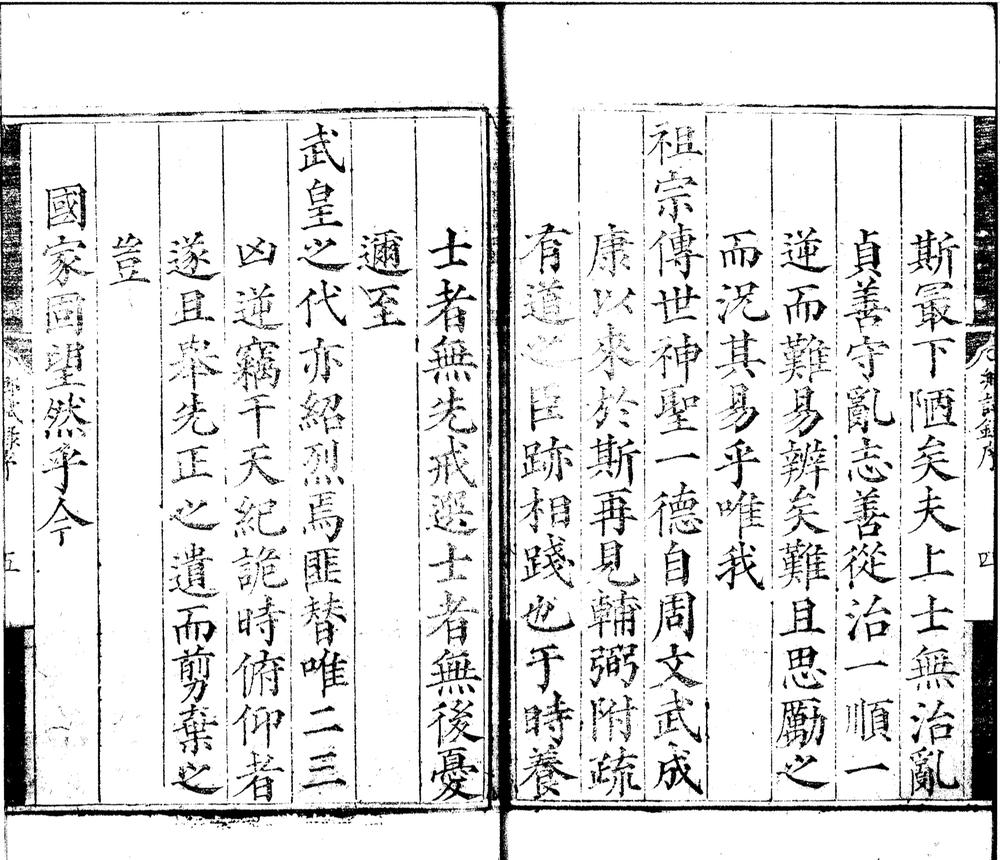 斯最下陋矣夫上士無治亂
貞善守亂志善從治一順一
逆而難易辨矣難且思勵之
而況其易乎唯我
祖宗傳世神聖一德自周文武成
康以來於斯再見輔弼附疏
有道之臣跡相踐也于時養
士者無先戒選士者無後憂
邇至
武皇之代亦紹烈焉匪替唯二三
凶逆竊干天紀詭時俯仰者
遂且舉先正之遺而剪棄之
豈
國家固望然乎今